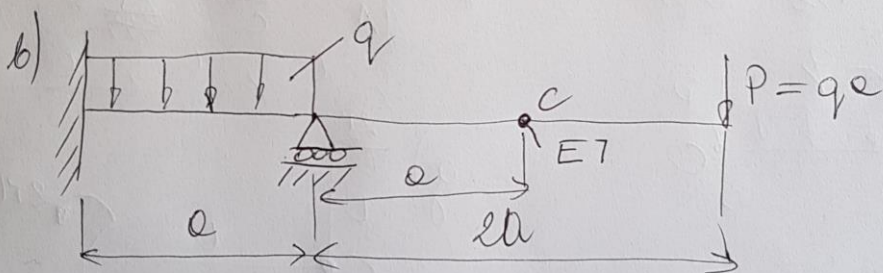 b)
q
C
P = qa
EI
a
a
2a